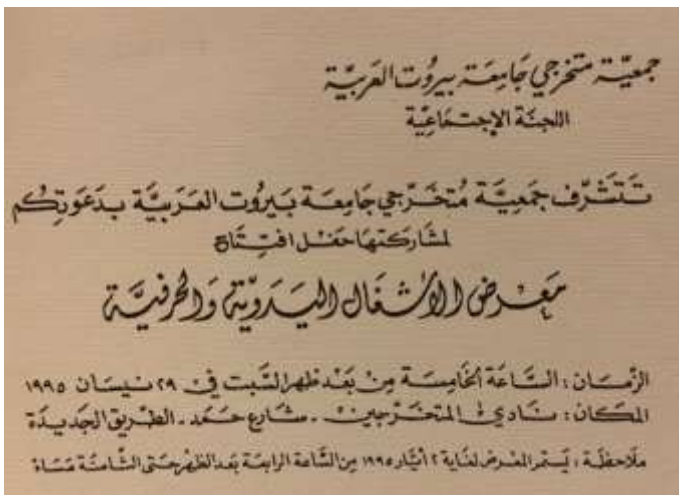 جمعيّة متخرجي جَامعَة بيرُوت العَربيَّة
اللجنَة الإجتمَاعيَّة
تَتَشَرَّف جَمعيَّة مُتخَرّجي جَامعَة بَيرُوت العَرَبيَّة بدَعوَتِكُم
لمشَاركتهَا حَفل افتِتَاح
مَعْرض الأشغَال اليَدَويَّة وَالحِرفيَّة
الزّمَان : السَّاعَة الخَامِسَة مِنْ بَعْد ظهر السَّبت في ٢٩ نيسَان ١٩٩٥
المكَان : نَادي المتخَرّجين - شَارع حَمَد - الطَريق الجَديدَة
ملَاحظَة : يَستمر المَعرض لغَاية ٢ أيَّار ١٩٩٥ مِن السَّاعة الرابعَة بَعد الظهر حتى الثَّامنَة مَسَاءً